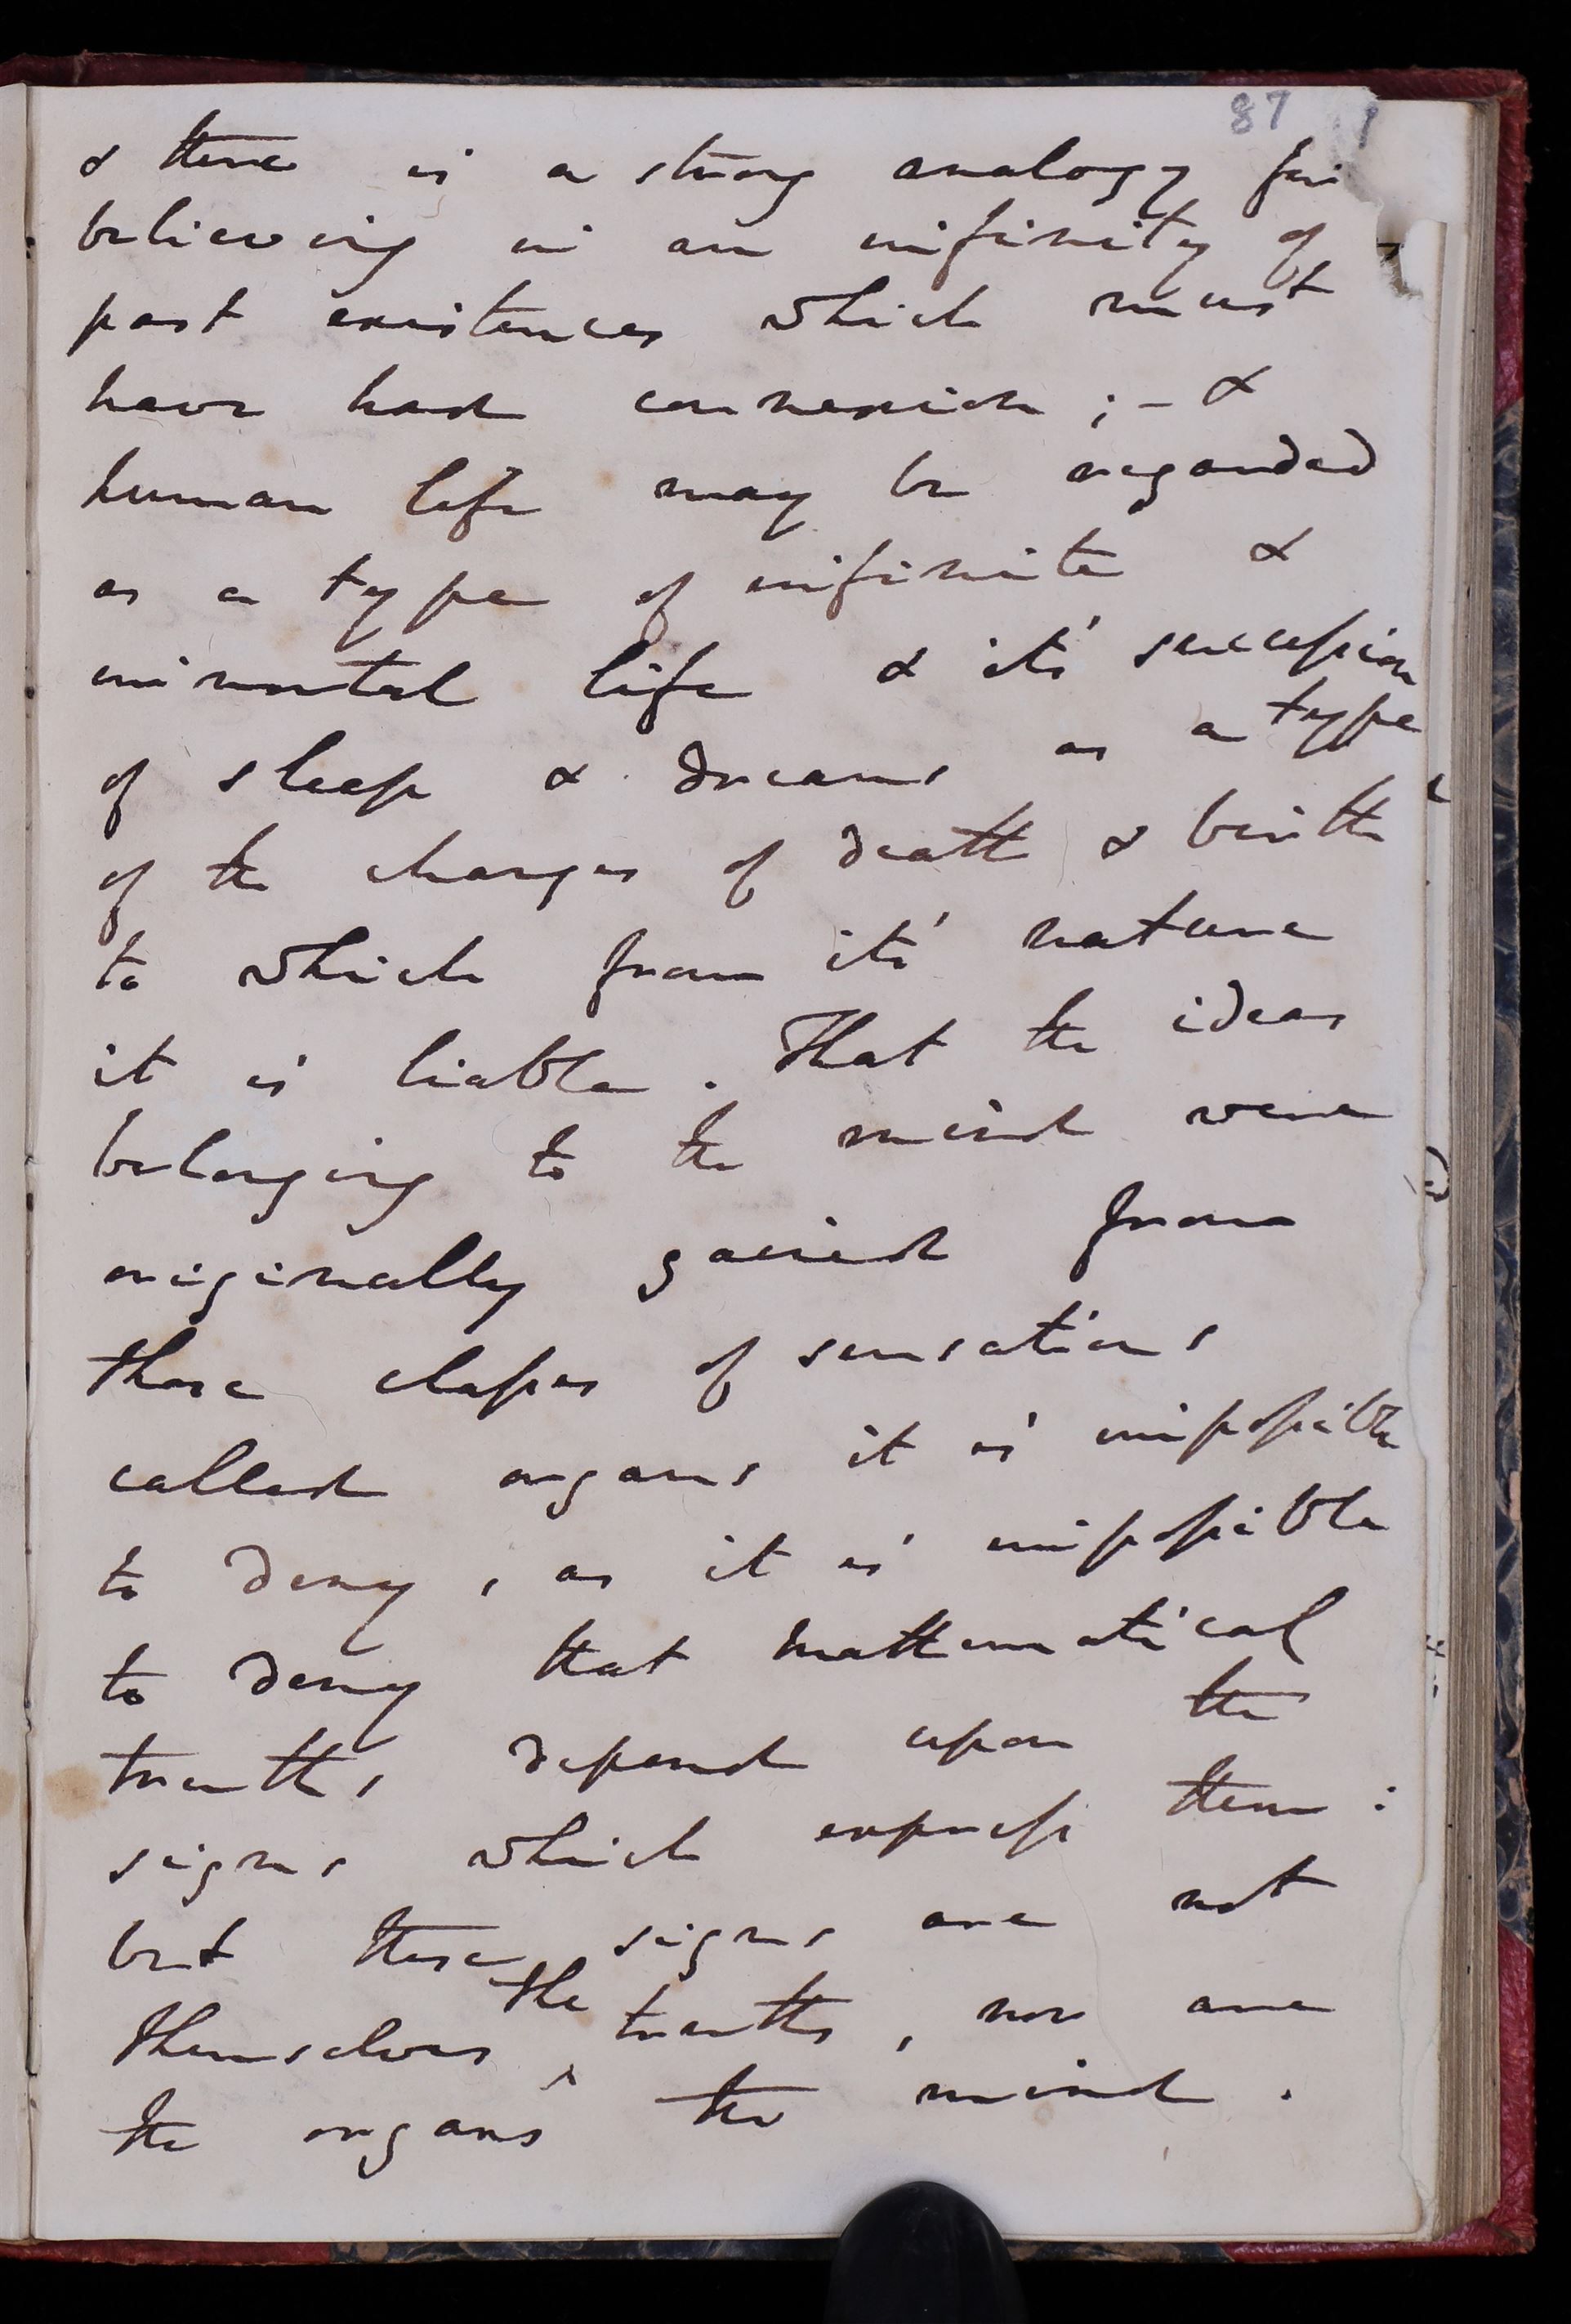 87
& there is a strong analogy for
believing in an infinity of
past existences which must
have had connexion ; - &
human life may be regarded
as a type of infinite &
immortal life & its' succession
of sleep & dreams as a type
of the changes of death & birth
to which from its' nature
it is liable. That the ideas
belonging to the mind were
originally gained from
those classes of sensations
called organs it is impossible
to deny, as it is impossible
to deny that mathematical
truths depend upon the
signs which express them :
but these signs are not
themselves the truths, nor are
the organs the mind.